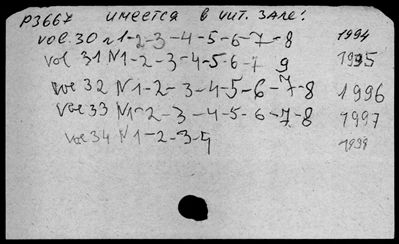 P3667 имеется в чит. зале:
vol. 30 N 1-2-3-4-5-6-7-8 1994
vol 31 N1-2-3-4-5-6-7 9 1995
vol 32 N1-2-3-4-5-6-7-8 1996
vol 33 N1-2-3-4-5-6-7-8 1997
vol 34 N1-2-3-4